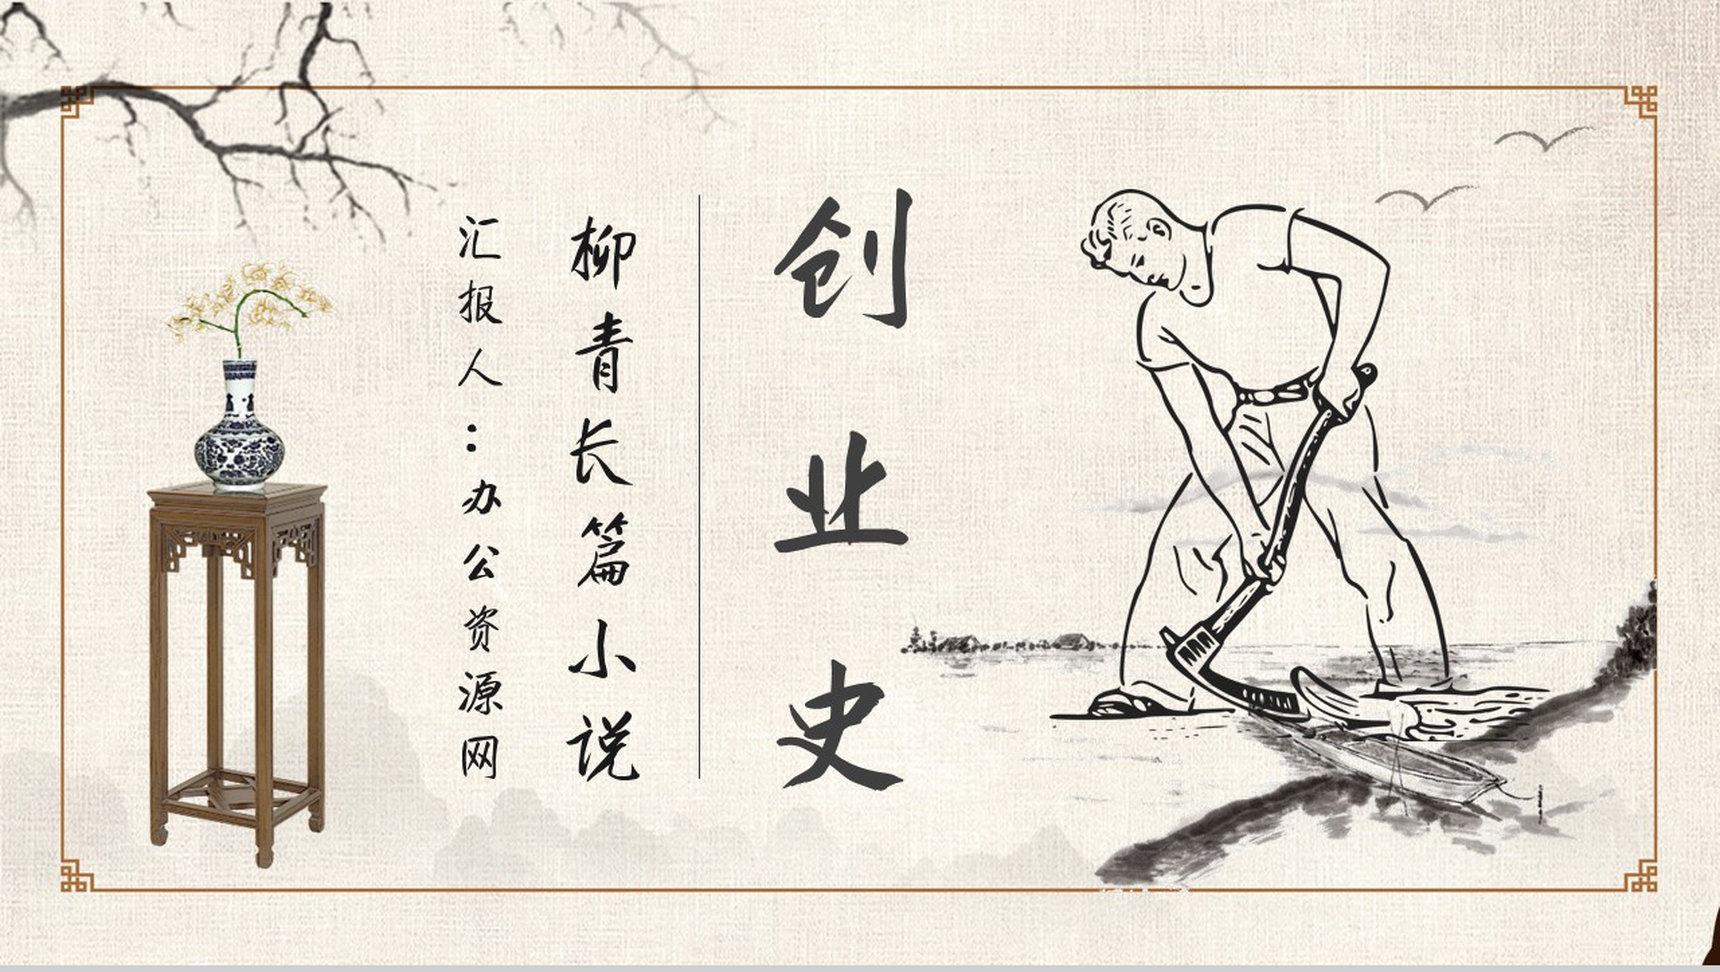 创业史
柳青长篇小说
汇报人：办公资源网